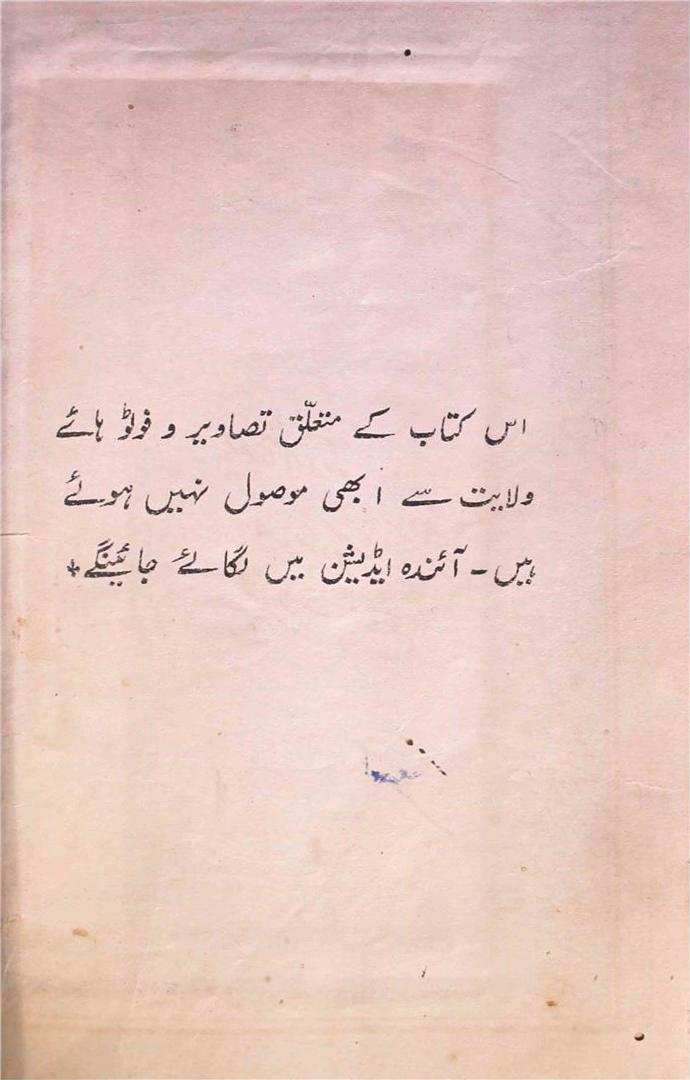 اس کتاب کے متعلّق تصاویر و فوٹو ہائے
ولایت سے ابھی موصول نہیں ہوئے
ہیں - آئندہ ایڈیشن میں لگائے جائینگے +